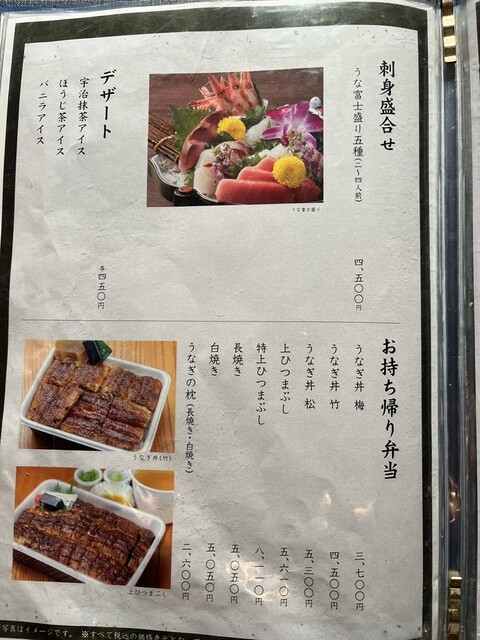 刺身盛合せ
うな富士盛り五種(二〜四人前)
四、五〇〇円
うな富士盛り
デザート
宇治抹茶アイス
ほうじ茶アイス
バニラアイス
各四五〇円
お持ち帰り弁当
うなぎ丼 梅
三、七〇〇円
うなぎ丼 竹
四、五〇〇円
うなぎ丼 松
五、三〇〇円
上ひつまぶし
五、六一〇円
特上ひつまぶし
八、一一〇円
長焼き
五、〇五〇円
白焼き
五、〇五〇円
うなぎの枕(長焼き・白焼き)
二、六〇〇円
うなぎ丼(竹)
上ひつまぶし
写真はイメージです。 ※すべて税込の価格